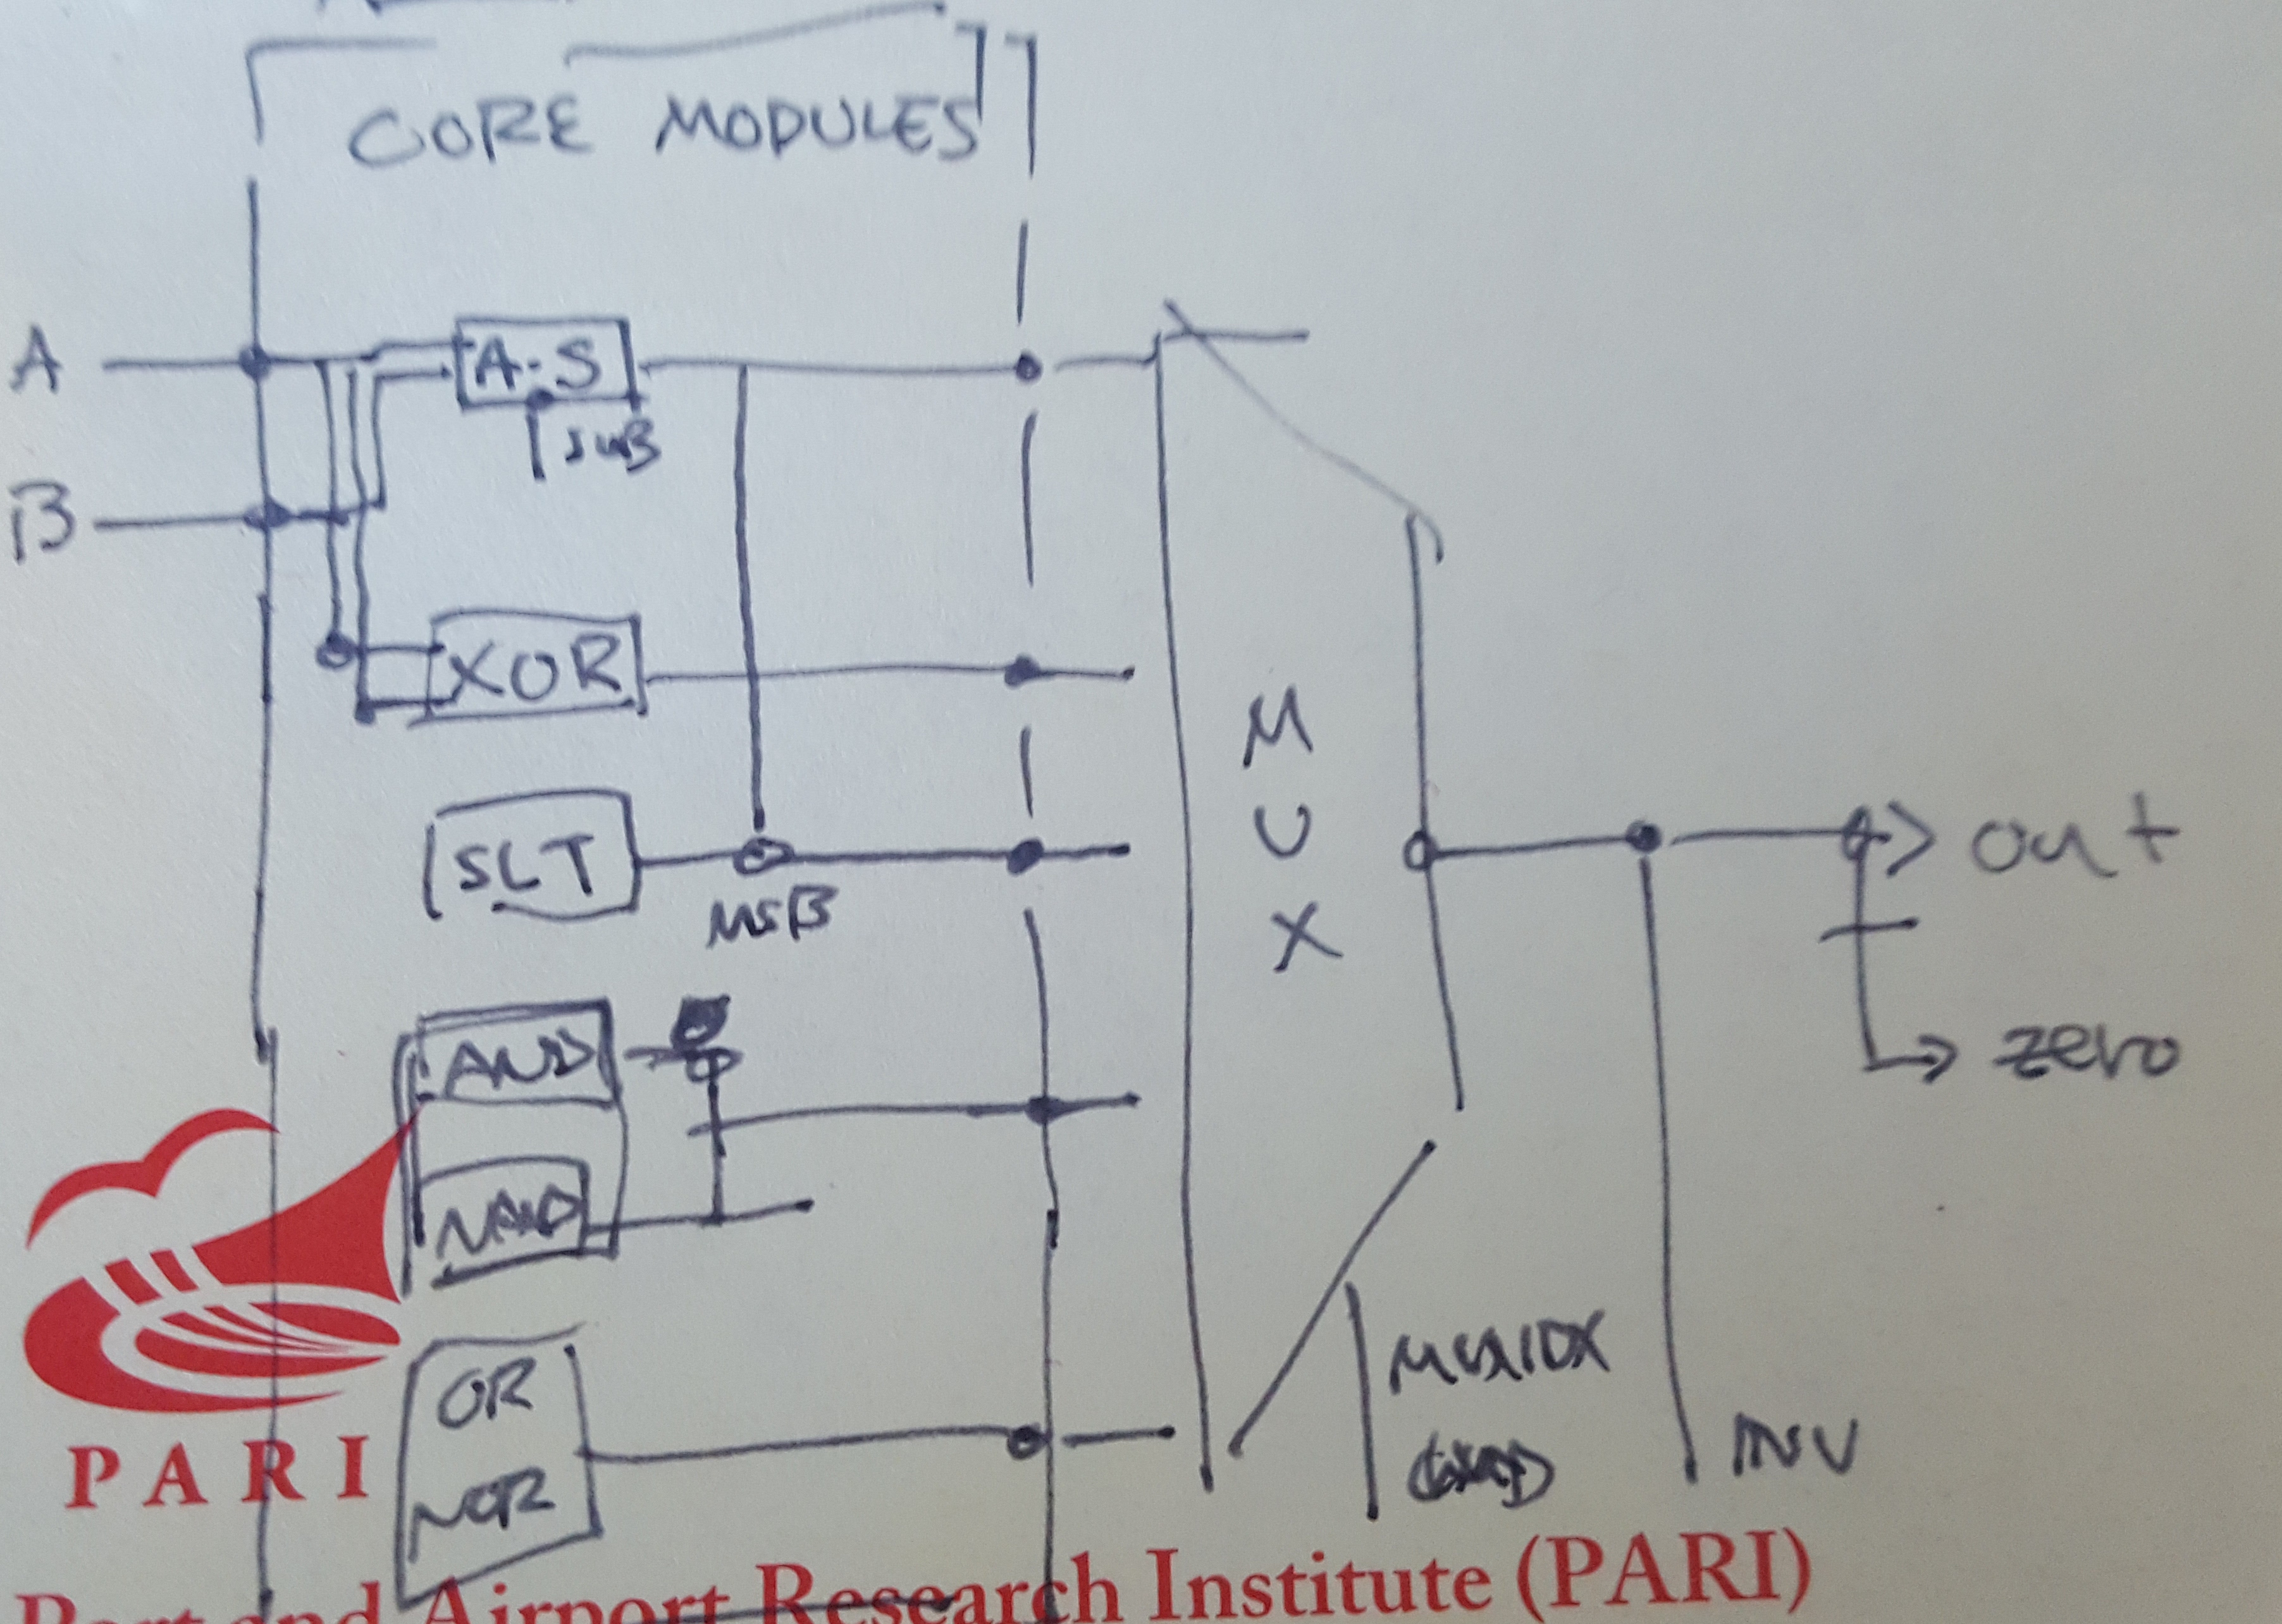 CORE MODULES
A
A-S
SUB
B
XOR
SLT
MSB
AND
NAND
OR
NOR
M
U
X
out
zero
INV
PARI
Airport Research Institute (PARI)